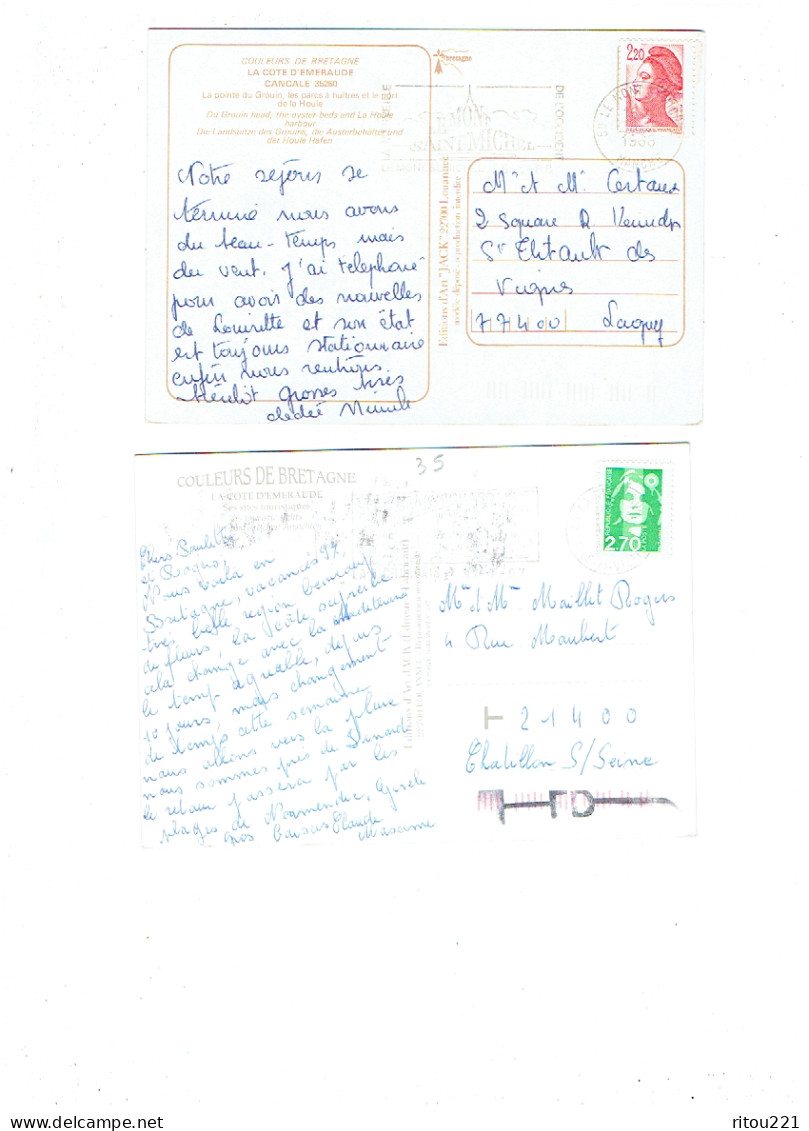 COULEURS DE BRETAGNE
LA COTE D'EMERAUDE
CANCALE 35260
La pointe du Grouin, les parcs à huîtres et le port
de la Houle
Du Grouin head, the oyster-beds and La Houle
harbour
Die Landspitze des Grouins, die Austerbehälter und
der Houle Hafen
bretagne
2,20
LE MONT
SAINT-MICHEL
1988
Notre séjour se
termine nous avons
du beau-temps mais
du vent. J'ai telephoné
pour avoir des nouvelles
de et son état
est toujours stationnaire
enfin nous rentrons
bientôt grosses bises
Editions d'Art "JACK" 22700 Louannec
modèle déposé - reproduction interdite
Mr et Me
2 Square R Kennedy
St Thibault des
Vignes
77400 Lagny
35
COULEURS DE BRETAGNE
LA COTE D'EMERAUDE
REPUBLIQUE FRANCAISE
LA POSTE
2,70
Chers Paulette
et Roger,
Nous voilà en
Bretagne, vacances 97.
très belle région beaucoup
de fleurs, la côte superbe
cela change avec la Mediterranée
le temp agréable, depuis
10 jours, mais changement
de temps cette semaine
nous allons vers la pluie
nous sommes près de Dinard
le retour passera par les
plages de Normandie,
Gros Baisers Claude
Mr et Me Maillet Roger
4 Rue Maubert
21400
Chatillon S/Seine
ritou221